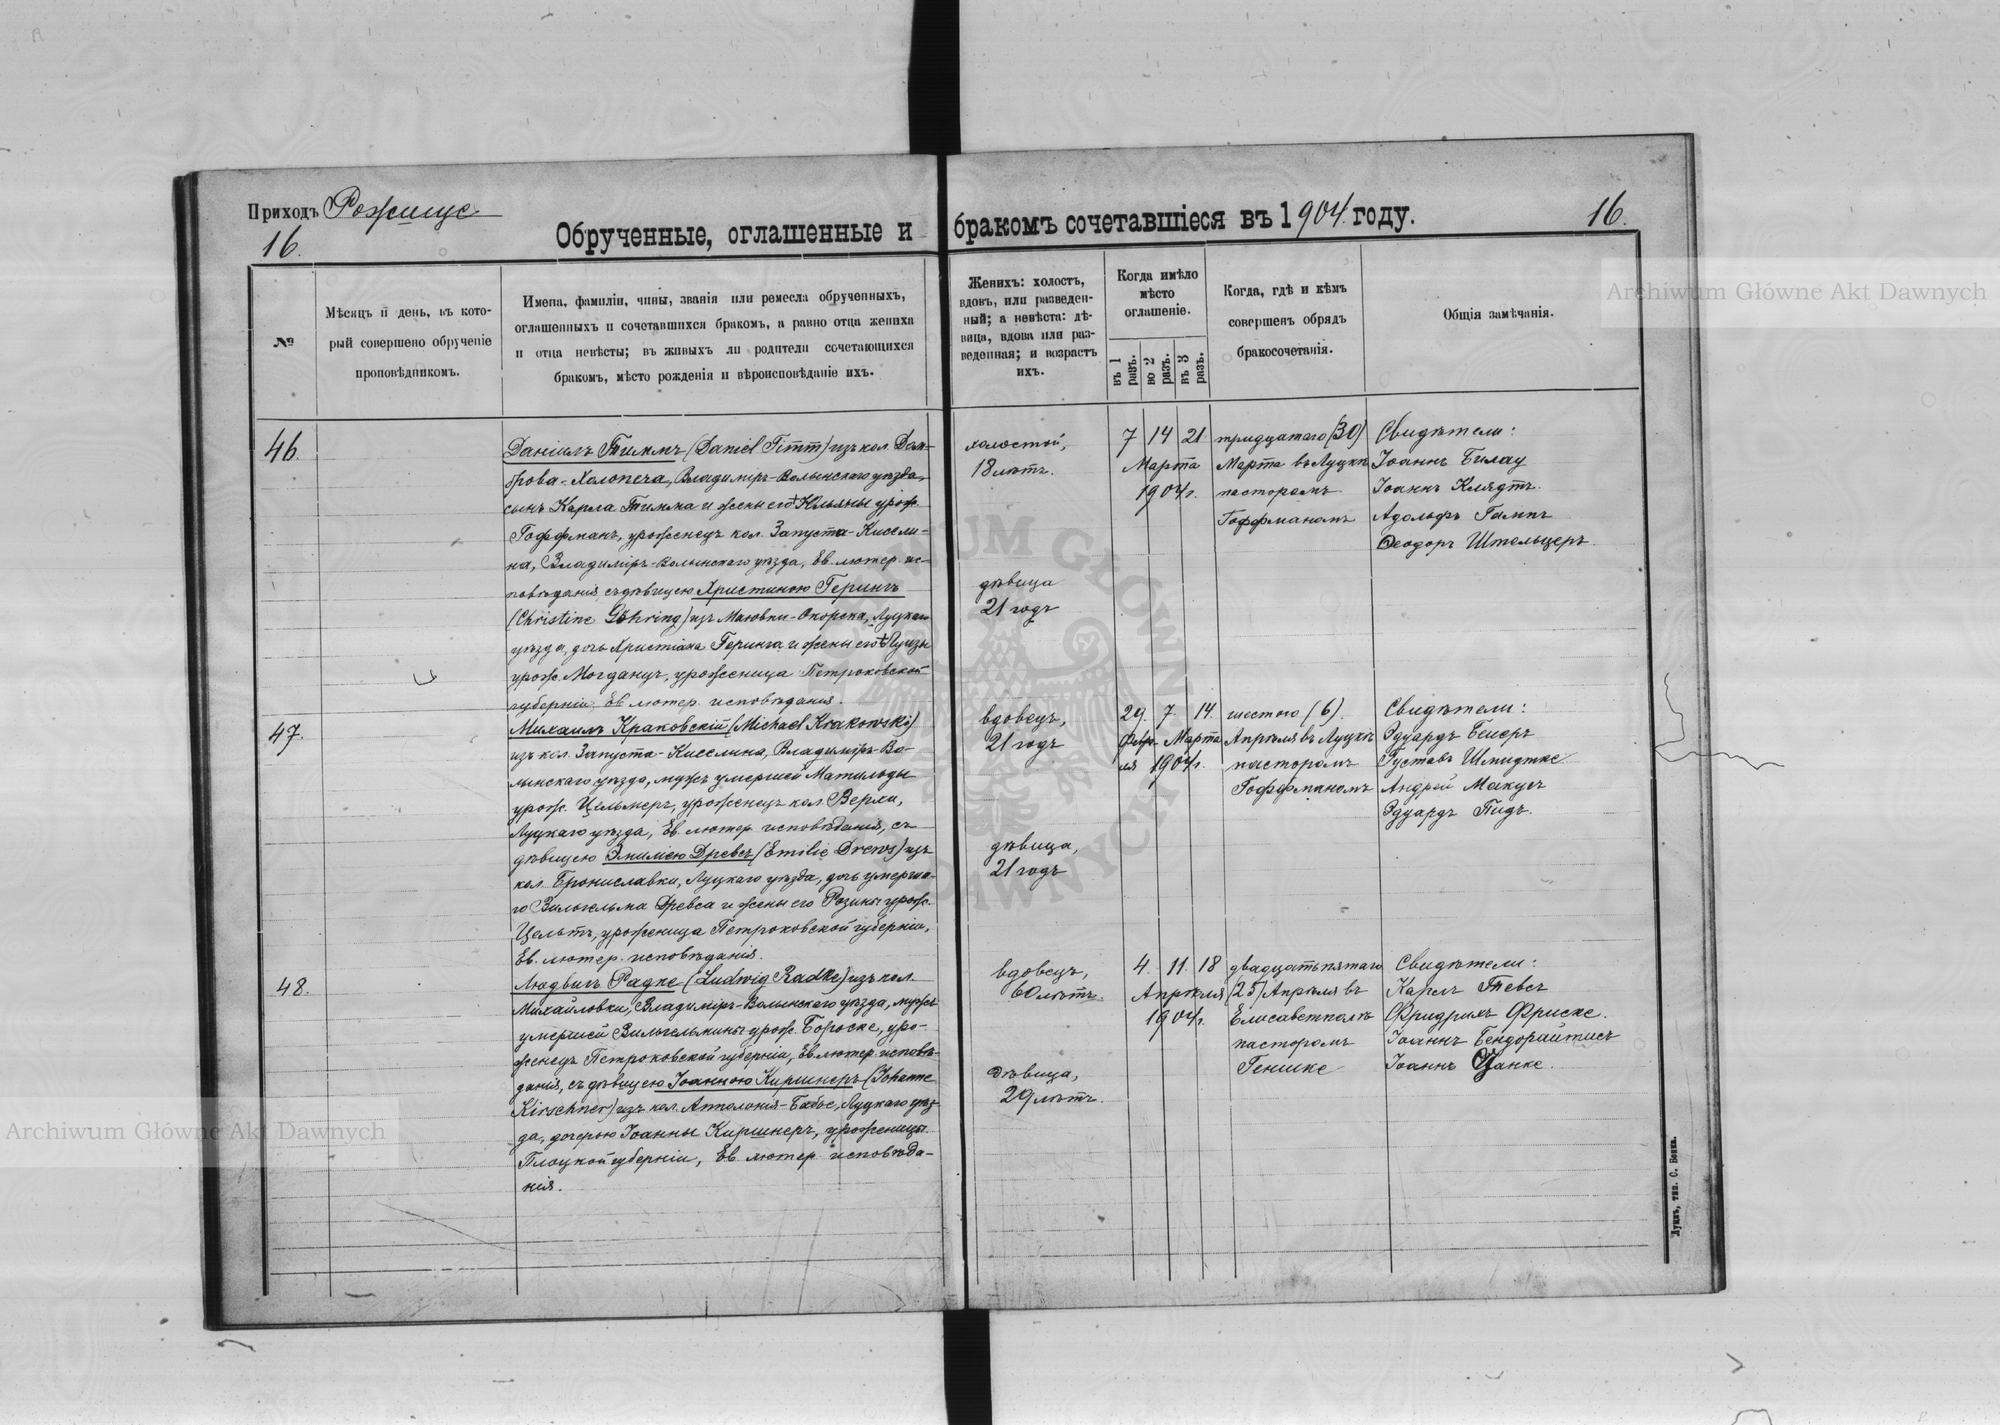 Приходъ Рожище
16.
Обрученные, оглашенные и бракомъ сочетавшіеся въ 1904 году.
16.
№
Мѣсяцъ и день, въ кото-
рый совершено обрученіе
проповѣдникомъ.
Имена, фамиліи, чины, званія или ремесла обрученныхъ,
оглашенныхъ и сочетавшихся бракомъ, а равно отца жениха
и отца невѣсты; въ живыхъ ли родители сочетающихся
бракомъ, мѣсто рожденія и вѣроисповѣданіе ихъ.
Женихъ: холостъ,
вдовъ, или разведен-
ный; а невѣста: дѣ-
вица, вдова или раз-
веденная; и возрастъ
ихъ.
Когда имѣло
мѣсто
оглашеніе.
въ 1
разъ.
во 2
разъ.
въ 3
разъ.
Когда, гдѣ и кѣмъ
совершенъ обрядъ
бракосочетанія.
Общія замѣчанія.
46.
Даніилъ Тиммъ (Daniel Timm) изъ кол. Дом-
брова-Холопеча, Владиміръ-Волынскаго уѣзда,
сынъ Карла Тимма и жены его † Юльяны урож.
Гоффманъ, уроженецъ кол. Запуста-Кисели-
на, Владиміръ-Волынскаго уѣзда, Ев. лютер. ис-
повѣданія, съ дѣвицею Христиною Герингъ
(Christine Göhring) изъ Маювки-Окорска, Луцкаго
уѣзда, дочь Христіана Геринга и жены его † Луизы
урож. Могданцъ, уроженица Петроковской
губерніи, Ев. лютер. исповѣданія.
холостой,
18 лѣтъ.
дѣвица
21 годъ
7 14 21.
Марта
1904 г.
тридцатаго (30)
Марта въ Луцкѣ
пасторомъ
Гоффманомъ
Свидѣтели:
Іоаннъ Билау
Іоаннъ Клядтъ.
Адольфъ Гампъ
Ѳеодоръ Штельцеръ.
47.
Михаилъ Краковскій (Michael Krakowski)
изъ кол. Запуста-Киселина, Владиміръ-Во-
лынскаго уѣзда, мужъ умершей Матильды
урож. Цельмеръ, уроженецъ кол. Верхи,
Луцкаго уѣзда, Ев. лютер. исповѣданія, съ
дѣвицею Эмиліею Древсъ (Emilie Drews) изъ
кол. Брониславки, Луцкаго уѣзда, дочь умерша-
го Вильгельма Древса и жены его Розины урож.
Цельтъ, уроженица Петроковской губерніи,
Ев. лютер. исповѣданія.
вдовецъ,
21 годъ
дѣвица,
21 годъ
29. 7. 14.
Февра- Марта
ля 1904 г.
шестого (6).
Апрѣля въ Луцкѣ
пасторомъ
Гоффманомъ
Свидѣтели:
Эдуардъ Бейеръ
Густавъ Шмидтке
Андрей Макусъ
Эдуардъ Пидъ.
48.
Людвигъ Радке (Ludwig Radke) изъ кол.
Михайловки, Владиміръ-Волынскаго уѣзда, мужъ
умершей Вильгельмины урож. Бороске, уро-
женецъ Петроковской губерніи, Ев. лютер. исповѣ-
данія, съ дѣвицею Іоанною Киршнеръ (Johanne
Kirschner) изъ кол. Апполонія-Бабье, Луцкаго уѣз-
да, дочерью Іоанны Киршнеръ, уроженицы
Плоцкой губерніи, Ев. лютер. исповѣда-
нія.
вдовецъ,
60 лѣтъ.
дѣвица,
29 лѣтъ.
4. 11. 18
Апрѣля
1904 г.
двадцать пятаго
(25) Апрѣля въ
Елисаветполѣ
пасторомъ
Генике
Свидѣтели:
Карлъ Тевсъ
Фридрихъ Фриске.
Іоаннъ Бендорайтисъ
Іоаннъ Цанке.
Луцкъ, тип. С. Бонка.
Archiwum Główne Akt Dawnych
Archiwum Główne Akt Dawnych